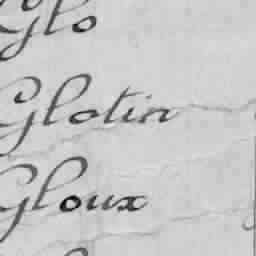 Glo
Glotin
Gloux